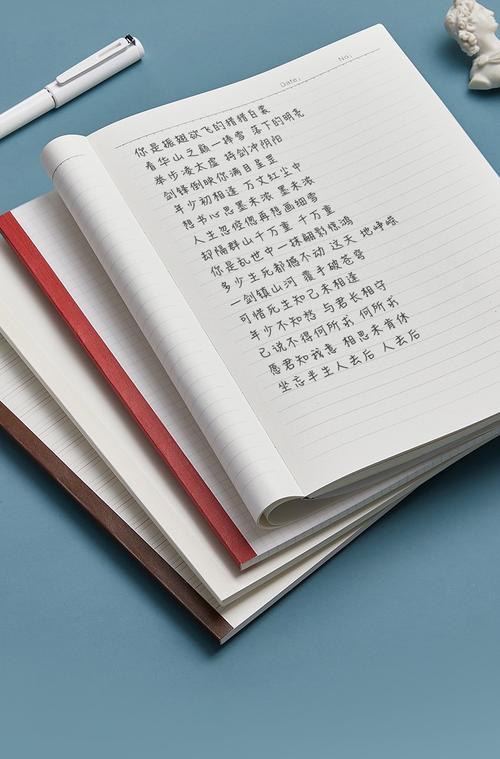 Date:
No:
你是振翅欲飞的猎猎白裳
看华山之巅一捧雪 落下的明亮
举步凌太虚 持剑冲阴阳
剑锋倒映你满目星罡
年少初相逢 万丈红尘中
想书心思墨未浓 墨未浓
人生忽怔忪再想画细雪
却隔群山千万重 千万重
你是乱世中一抹翩影惊鸿
多少生死都撼不动 这天 地峥嵘
一剑镇山河 覆手破苍穹
可惜死生知己未相逢
年少不知愁 与君长相守
己说不得何所求 何所求
愿君知我意 相思未肯休
坐忘半生人去后 人去后